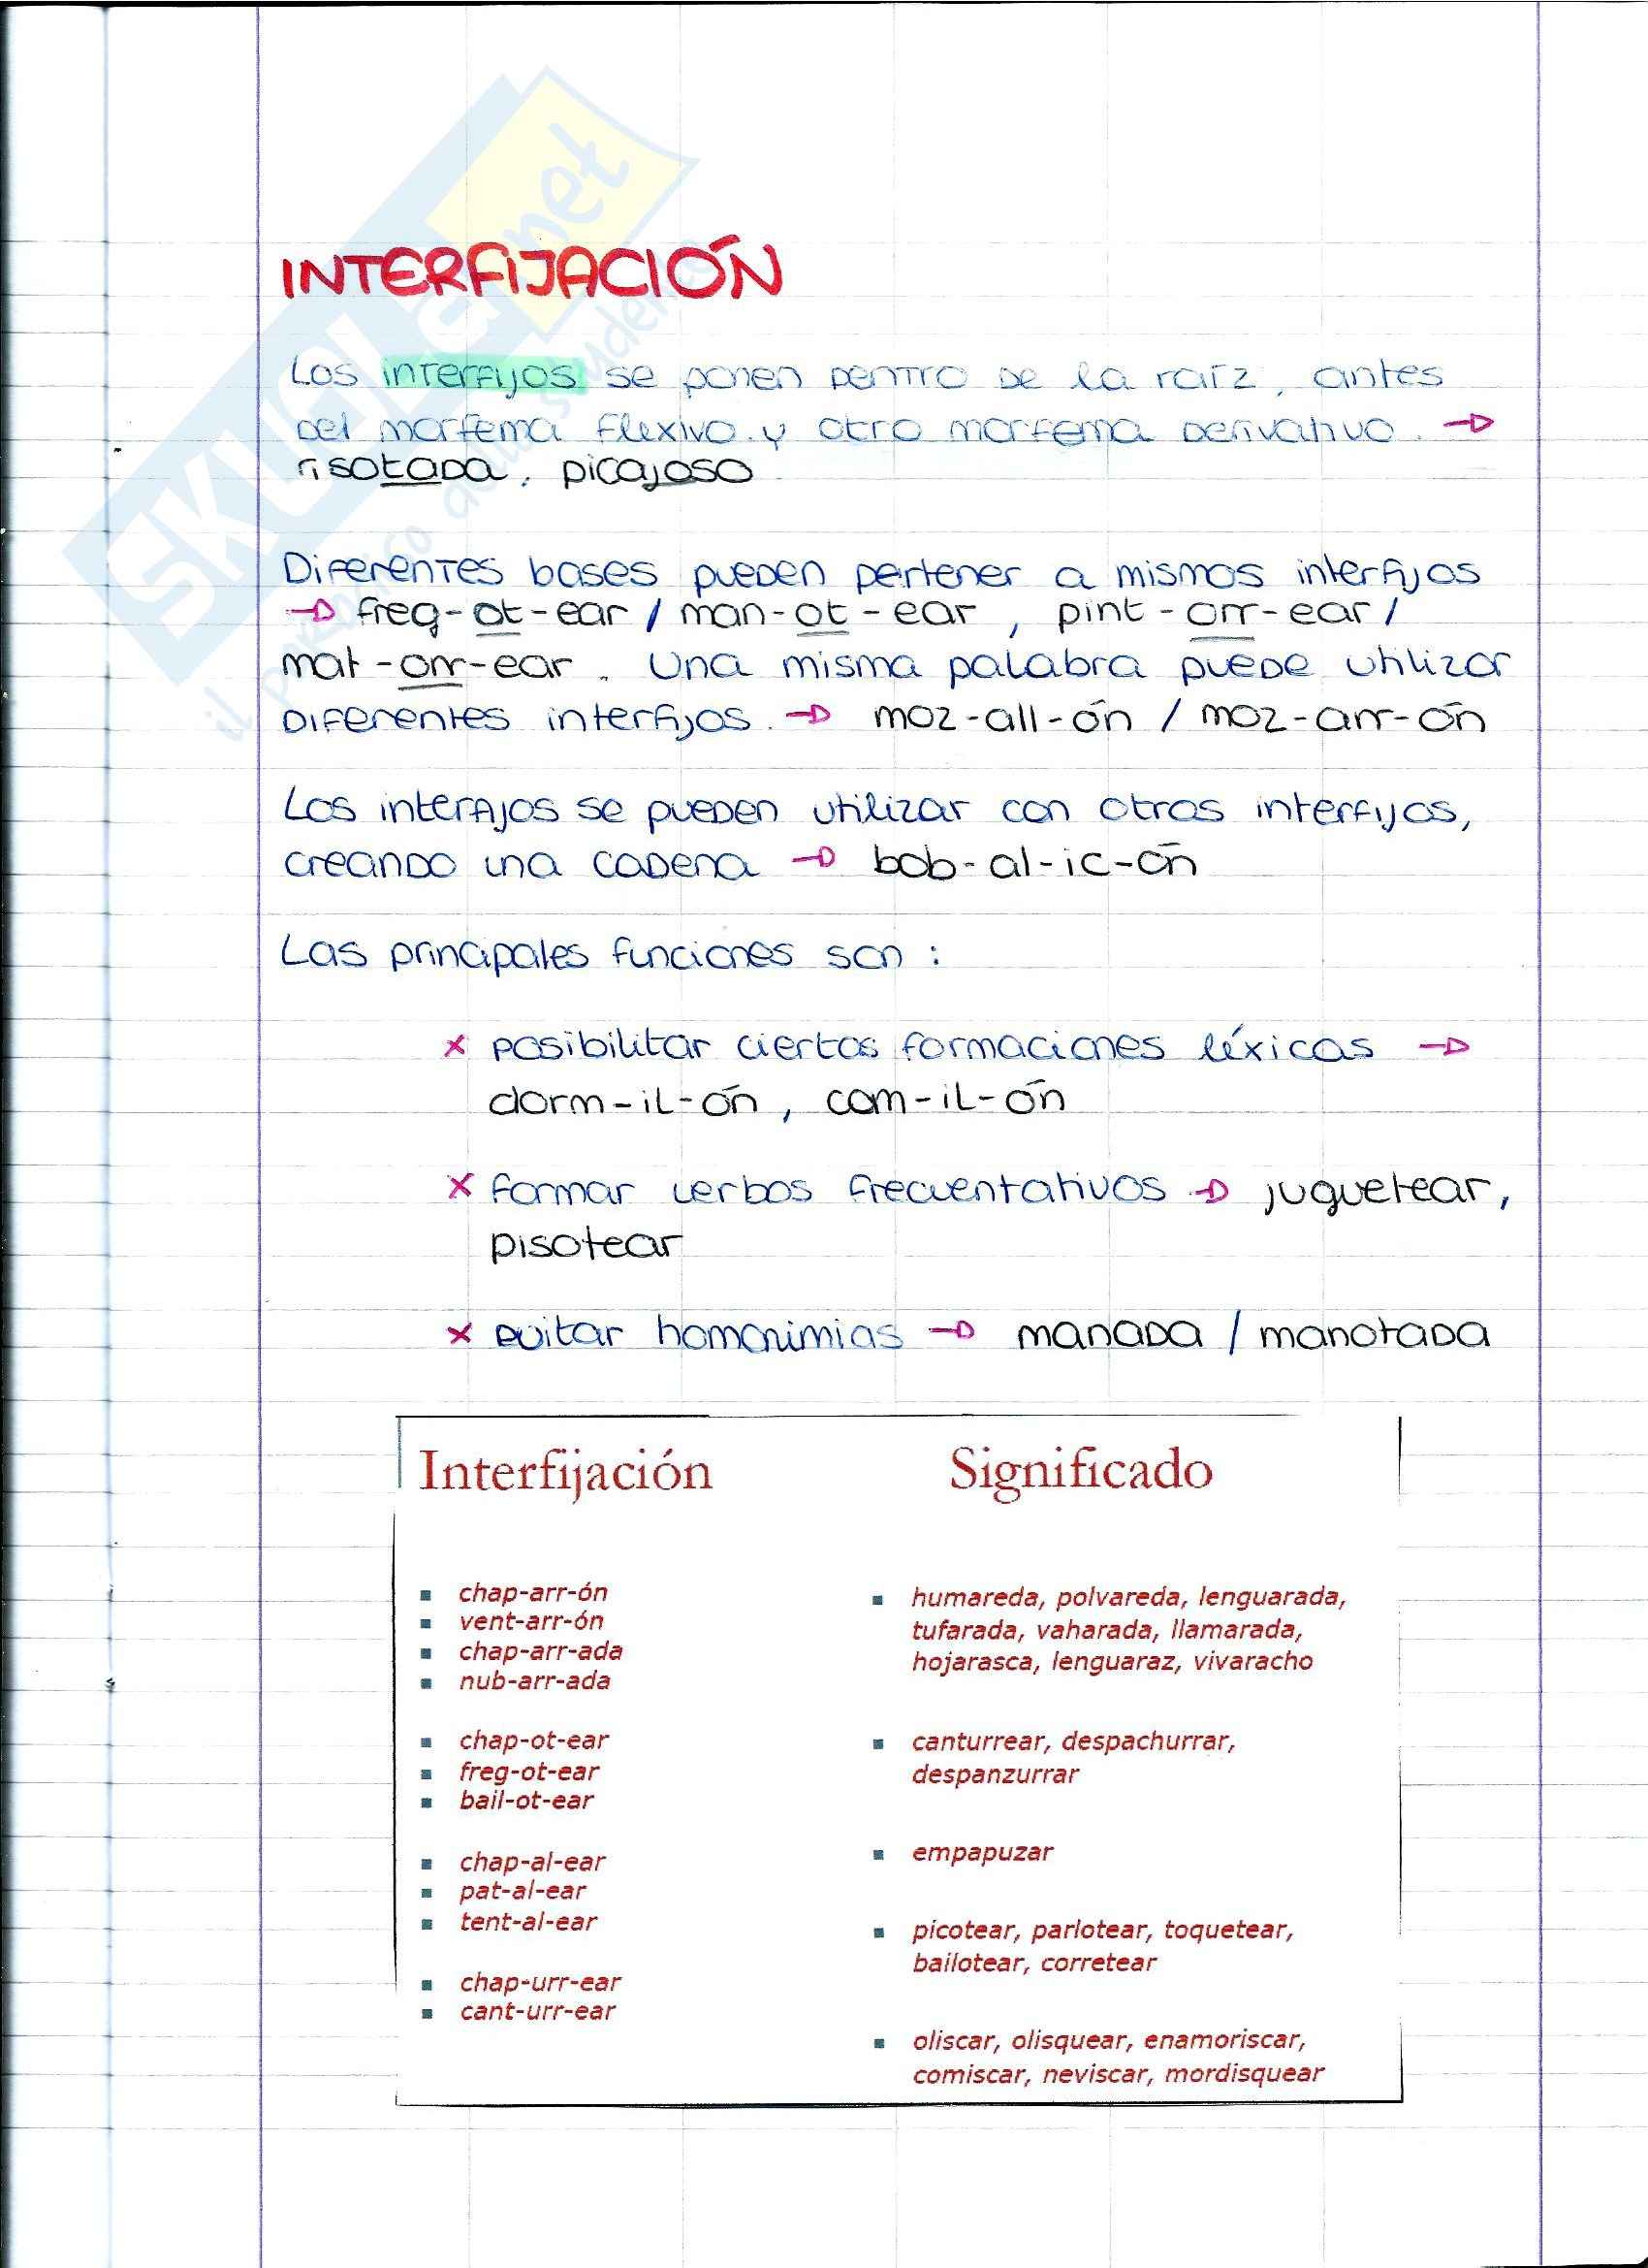 SKUOLa.net
il paradiso dello studente
INTERFIJACIÓN
Los interfijos se ponen dentro de la raíz, antes
del morfema flexivo y otro morfema derivativo. →
risotada, picajoso
Diferentes bases pueden pertener a mismos interfijos
→ freg-ot-ear / man-ot-ear, pint-orr-ear /
mat-orr-ear. Una misma palabra puede utilizar
diferentes interfijos. → moz-all-ón / moz-arr-ón
Los interfijos se pueden utilizar con otros interfijos,
creando una cadena → bob-al-ic-ón
Las principales funciones son:
x posibilitar ciertas formaciones léxicas →
dorm-il-ón, com-il-ón
x formar verbos frecuentativos → juguetear,
pisotear
x evitar homonimias → manada / manotada
Interfijación
Significado
▪ chap-arr-ón
▪ vent-arr-ón
▪ chap-arr-ada
▪ nub-arr-ada
▪ chap-ot-ear
▪ freg-ot-ear
▪ bail-ot-ear
▪ chap-al-ear
▪ pat-al-ear
▪ tent-al-ear
▪ chap-urr-ear
▪ cant-urr-ear
▪ humareda, polvareda, lenguarada,
tufarada, vaharada, llamarada,
hojarasca, lenguaraz, vivaracho
▪ canturrear, despachurrar,
despanzurrar
▪ empapuzar
▪ picotear, parlotear, toquetear,
bailotear, corretear
▪ oliscar, olisquear, enamoriscar,
comiscar, neviscar, mordisquear